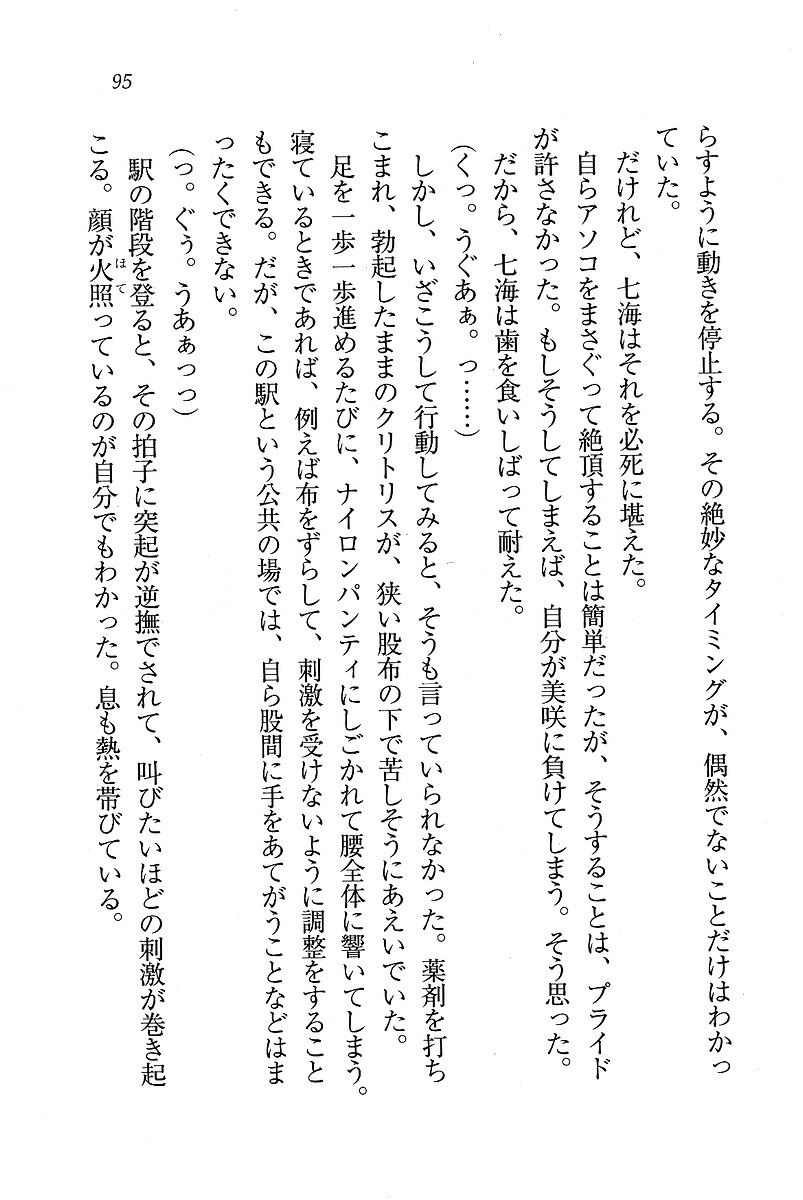 95
らすように動きを停止する。その絶妙なタイミングが、偶然でないことだけはわかっ
ていた。
だけれど、七海はそれを必死に堪えた。
自らアソコをまさぐって絶頂することは簡単だったが、そうすることは、プライド
が許さなかった。もしそうしてしまえば、自分が美咲に負けてしまう。そう思った。
だから、七海は歯を食いしばって耐えた。
(くっ。うぐあぁ。っ……)
しかし、いざこうして行動してみると、そうも言っていられなかった。薬剤を打ち
こまれ、勃起したままのクリトリスが、狭い股布の下で苦しそうにあえいでいた。
足を一歩一歩進めるたびに、ナイロンパンティにしごかれて腰全体に響いてしまう。
寝ているときであれば、例えば布をずらして、刺激を受けないように調整をすること
もできる。だが、この駅という公共の場では、自ら股間に手をあてがうことなどはま
ったくできない。
(っ。ぐぅ。うあぁっっ)
駅の階段を登ると、その拍子に突起が逆撫でされて、叫びたいほどの刺激が巻き起
こる。顔が火照っているのが自分でもわかった。息も熱を帯びている。
ほて